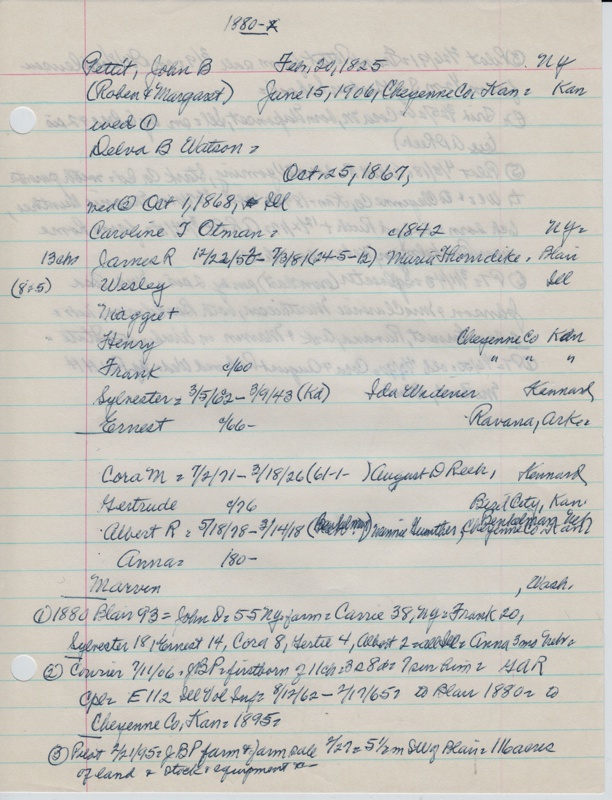 1880-
Pettit, John B Feb, 20, 1825 NY
(Robert & Margaret) June 15, 1906, Cheyenne Co, Kan = Kan
wed ①
Delva B Watson =
Oct, 25, 1867,
wed ② Oct 1, 1868, Ill
Caroline T Otman = c1842 NY=
13 chs James R 12/22/56- 7/3/81 (24-5-12) Maria Thorndike = Blair
(8 & 5) Wesley Ill
Maggie +
Henry Cheyenne Co Kan
Frank c/60 " " "
Sylvester = 3/5/62 - 3/9/43 (Kd) Ida Widener Kennard
Ernest c/66 - Ravana, Ark=
Cora M = 7/2/71 - 3/18/26 (61-1- ) August D Reeh, Kennard
Gertrude c/76 Bird City, Kan
Albert R = 5/18/78 - 3/14/18 (Benkelman) Nannie Gunther, Cheyenne Co Kan,
Benkelman Neb
Anna = 180-
Marvin , Wash.
① 1880 Blair 93 = John D = 55 NY = farm = Carrie 38, NY = Frank 20,
Sylvester 18, Ernest 14, Cora 8, Gertie 4, Albert 2 = all Ill = Anna 3ms Nebr =
② Courier 7/11/06 = JBP = firstborn of 11 ch = 3s 8d = 7 surv him = GAR
Cpl = E 112 Ill Vol Inf = 8/12/62 - 2/17/65? to Blair 1880 = to
Cheyenne Co, Kan = 1895 =
③ Pilot 2/21/95 = JBP farm & farm sale 2/27 = 5½ m SW of Blair = 116 acres
of land & stock & equipment =